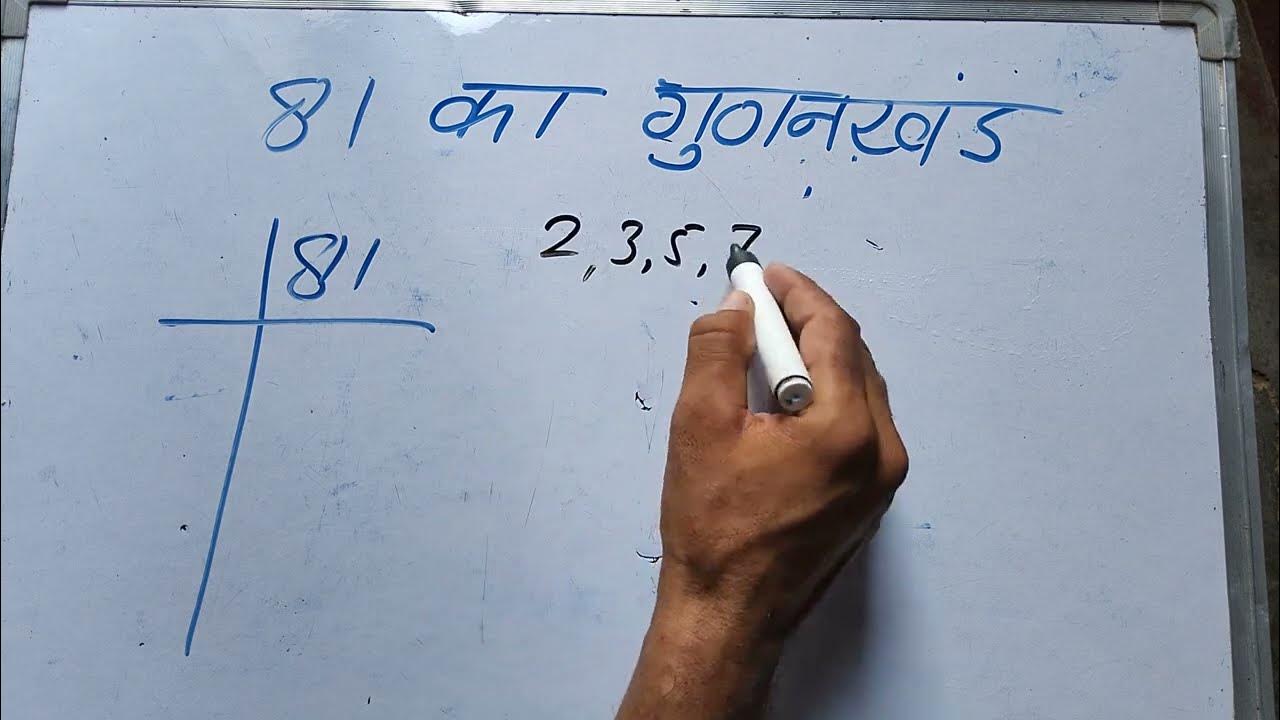 81 का गुणनखंड
81
2, 3, 5, 7